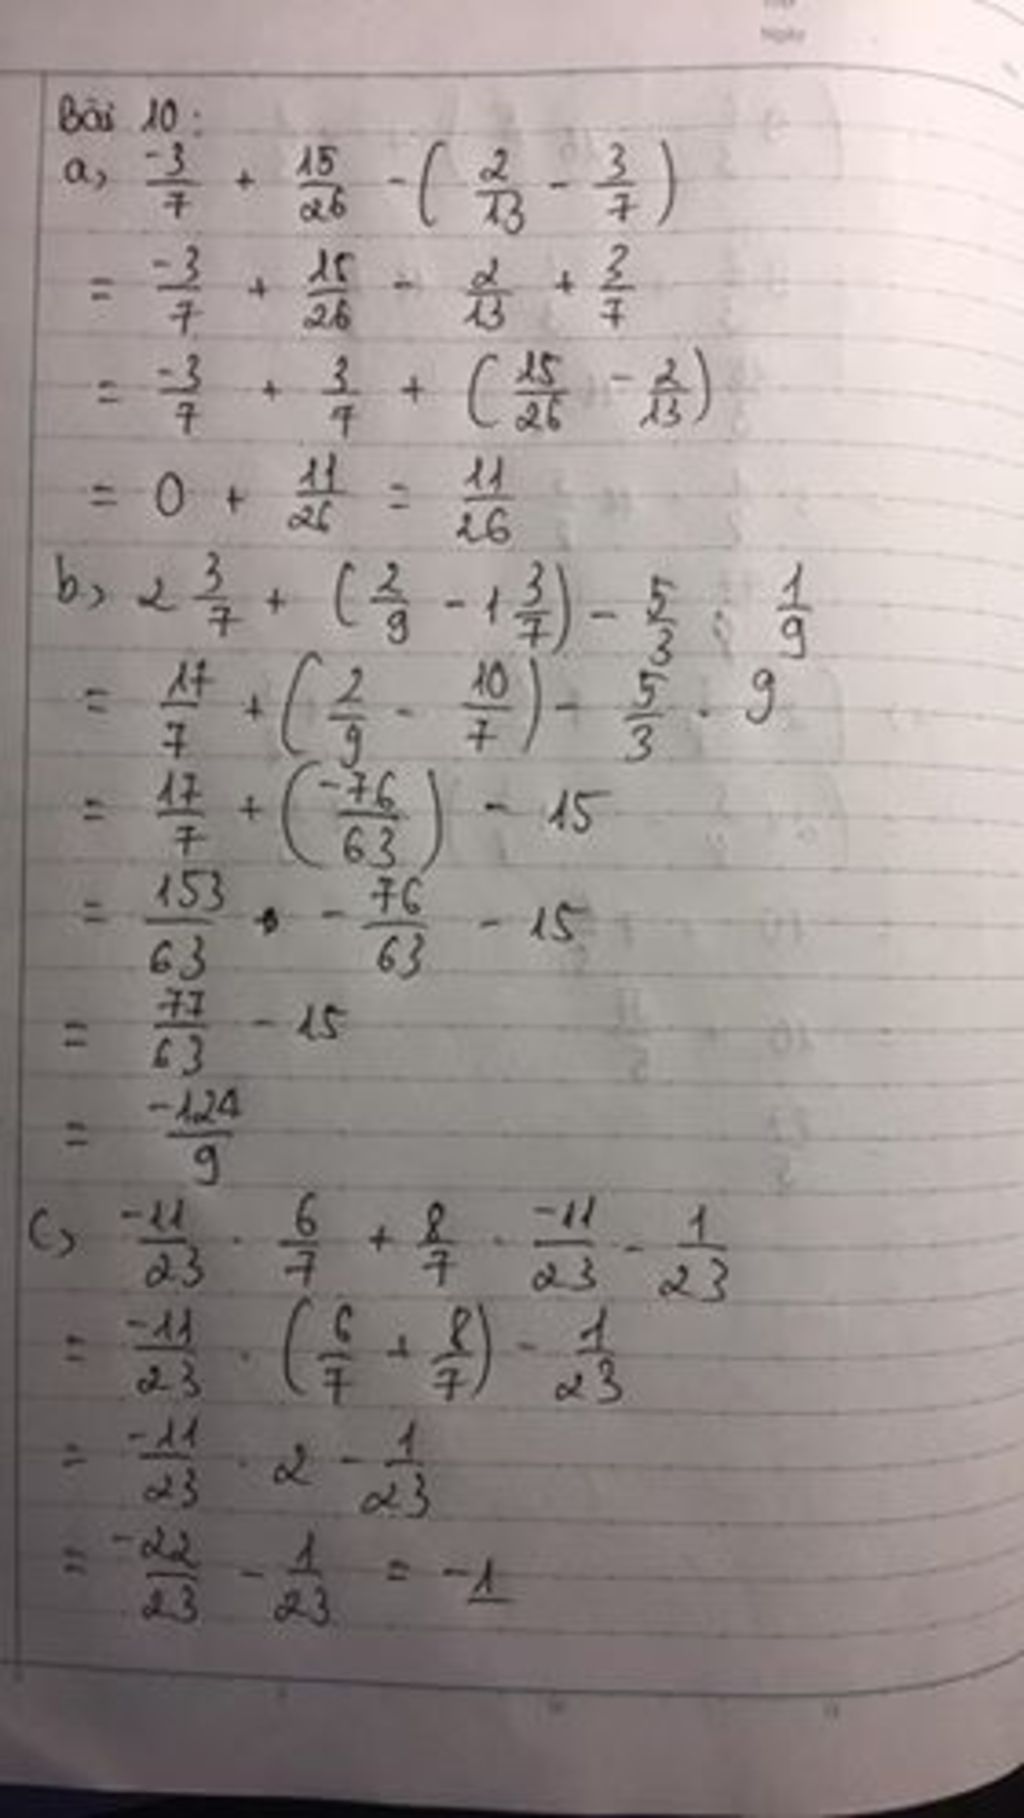 Ngày
Bài 10:
a, -3/7 + 15/26 - ( 2/13 - 3/7 )
= -3/7 + 15/26 - 2/13 + 3/7
= -3/7 + 3/7 + ( 15/26 - 2/13 )
= 0 + 11/26 = 11/26
b, 2 3/7 + ( 2/9 - 1 3/7 ) - 5/3 : 1/9
= 17/7 + ( 2/9 - 10/7 ) - 5/3 . 9
= 17/7 + ( -76/63 ) - 15
= 153/63 - 76/63 - 15
= 77/63 - 15
= -124/9
c, -11/23 . 6/7 + 8/7 . -11/23 - 1/23
= -11/23 . ( 6/7 + 8/7 ) - 1/23
= -11/23 . 2 - 1/23
= -22/23 - 1/23 = -1